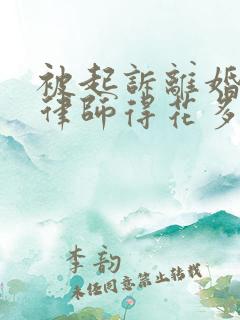 被起訴離婚
律師得花多
李韵
未经同意禁止转载